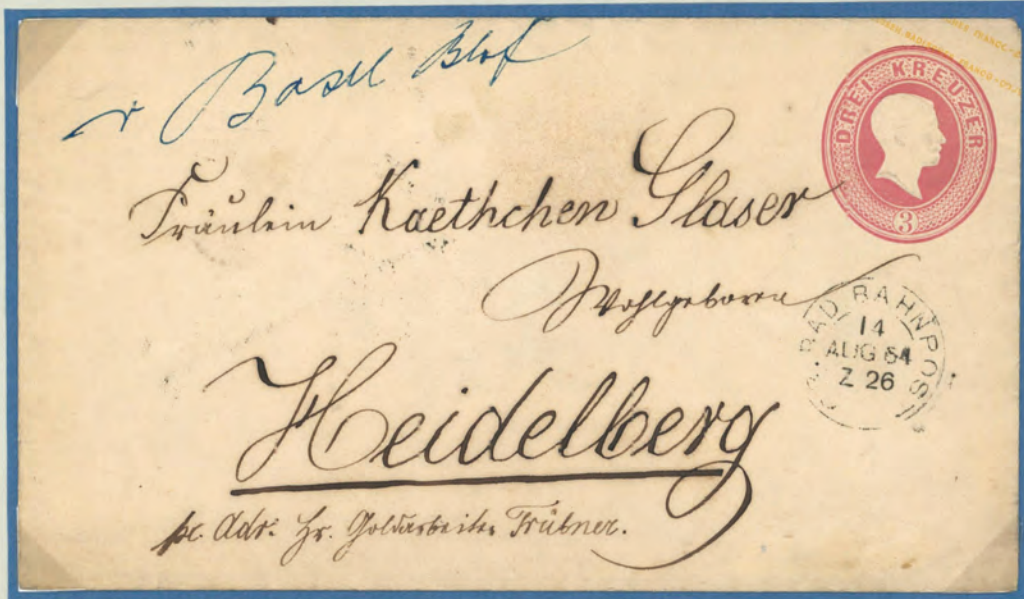 v Basel Bhf
DREI KREUZER
3
Fräulein Kaethchen Glaser
Wohlgeboren
BAD. BAHNPOST
14
AUG 64
Z 26
Heidelberg
pr. Adr: Hr. Goldarbeiter Trübner.